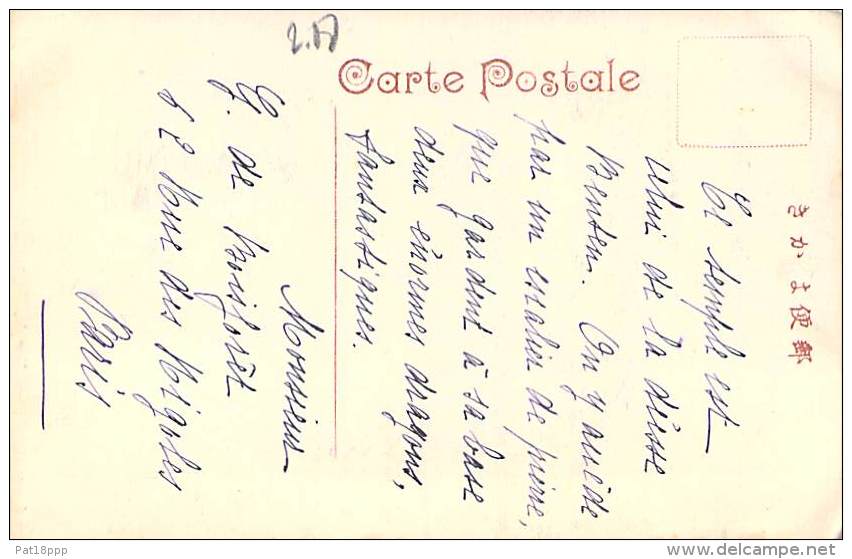 2.17
Carte Postale
きかま便郵
Ce temple est
celui de la déesse
Benten. On y accède
par un escalier de pierre,
que gardent à sa base
deux énormes dragons,
fantastiques.
Monsieur
G. de Boisgosit
52 Rue des Rigoles
Paris
Pat18ppp
delcampe.net